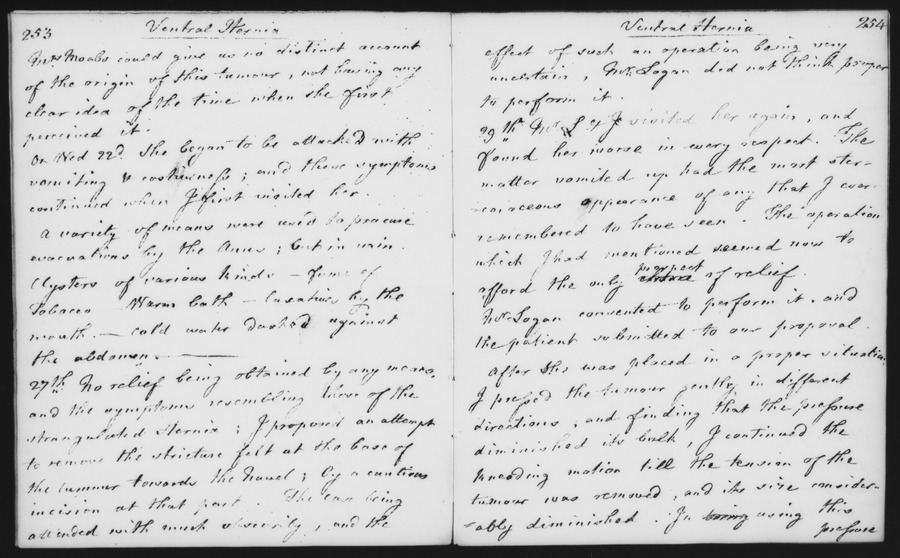 253
Ventral Hernia
Mrs Moabs could give us no distinct account
of the origin of this tumour, not having any
clear idea of the time when she first
perceived it.
On Wed 22d. She began to be attacked with
vomiting & costiveness; and these symptoms
continued when I first visited her.
A variety of means were used to procure
evacuations by the Anus; but in vain.
Clysters of various kinds — fume of
Tobacco — Warm bath — laxatives by the
mouth. — cold water dashed against
the abdomen. —
27th. No relief being obtained by any means,
and the symptoms resembling those of the
strangulated Hernia; I proposed an attempt
to remove the stricture felt at the base of
the tumour towards the Navel; by a cautious
incision at that part. The case being
attended with much obscurity, and the
254
Ventral Hernia
effect of such an operation being very
uncertain, Mr. Logan did not think proper
to perform it.
29th Mr. L & I visited her again, and
found her worse in every respect. The
matter vomited up had the most ster-
-coraceous appearance of any that I ever
remembered to have seen. The operation
which I had mentioned seemed now to
afford the only prospect of relief.
Mr. Logan consented to perform it, and
the patient submitted to our proposal.
After She was placed in a proper situation
I pressed the tumour gently in different
directions, and finding that the pressure
diminished its bulk, I continued the
kneading motion till the tension of the
tumour was removed, and its size consider-
-ably diminished. In using this
pressure